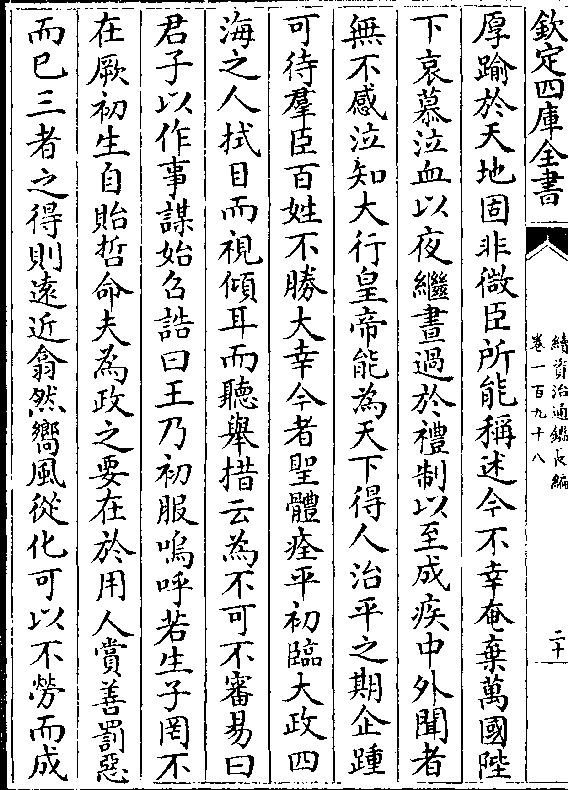 欽定四庫全書
續資治通鑑長編
卷一百九十八
二十
厚踰於天地固非微臣所能稱述今不幸奄棄萬國陛
下哀慕泣血以夜繼晝過於禮制以至成疾中外聞者
無不感泣知大行皇帝能為天下得人治平之期企踵
可待羣臣百姓不勝大幸今者聖體痊平初臨大政四
海之人拭目而視傾耳而聽舉措云為不可不審易曰
君子以作事謀始召誥曰王乃初服嗚呼若生子罔不
在厥初生自貽哲命夫為政之要在於用人賞善罰惡
而已三者之得則遠近翕然嚮風從化可以不勞而成